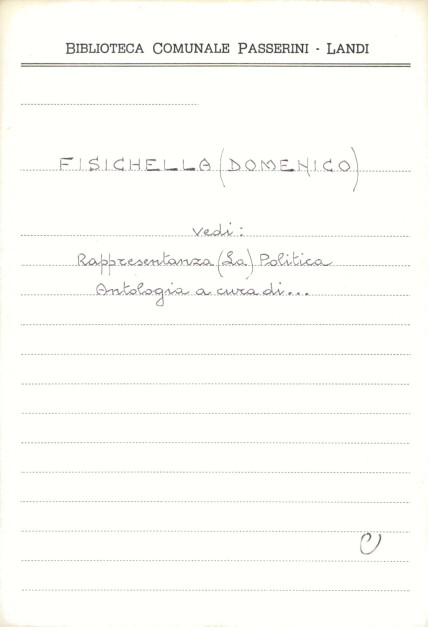 BIBLIOTECA COMUNALE PASSERINI - LANDI
FISICHELLA (DOMENICO)
vedi:
Rappresentanza (La) Politica
Antologia a cura di...